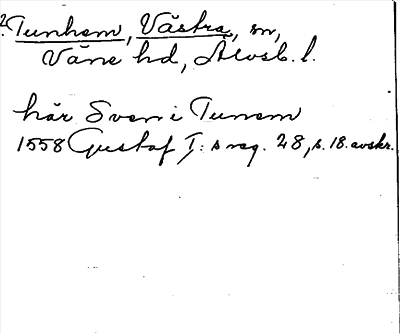 2. Tunhem, Västra, sn,
Väne hd, Älvsb. l.
här Sven i Tunem
1558 Gustaf I:s reg. 28, s. 18. avskr.